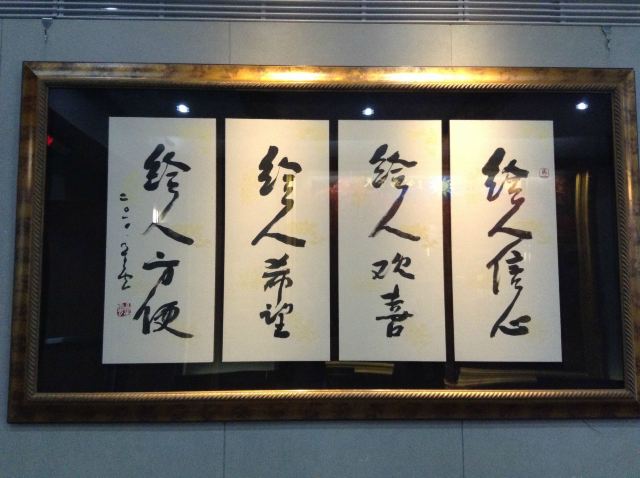 给人信心
给人欢喜
给人希望
给人方便
二〇一〇 星云